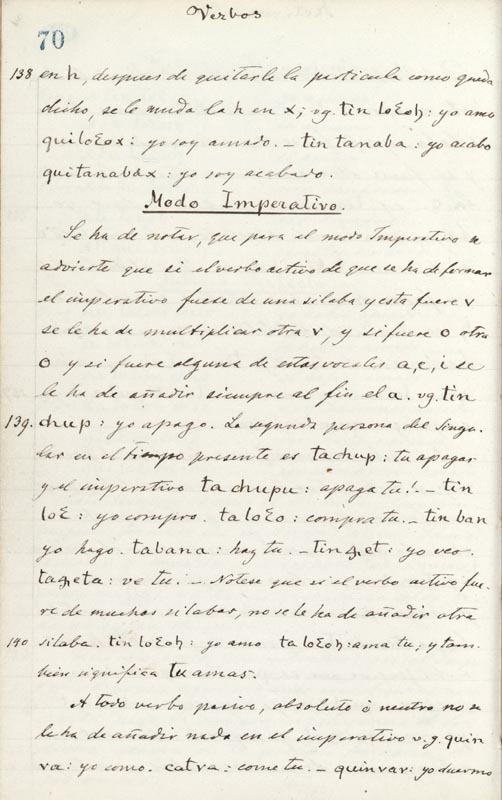 Verbos
70
138 en h, despues de quitarle la particula como queda
dicho, se le muda la h en x; vg. tin loƐoh: yo amo
quiloƐox: yo soy amado. – tin tanaba: yo acabo
quitanabax: yo soy acabado.
Modo Imperativo.
Se ha de notar, que para el modo Imperativo se
advierte que si el verbo activo de que se ha de formar
el imperativo fuese de una silaba y esta fuere v
se le ha de multiplicar otra v, y si fuere o otra
o y si fuere alguna de estas vocales a, e, i se
le ha de añadir siempre al fin el a. vg. tin
139. chup: yo apago. La segunda persona del singu-
lar en el tiempo presente es tachup: tu apagas
y el imperativo tachupu: apaga tu! – tin
loƐ: yo compro. taloƐo: compra tu. – tin ban
yo hago. tabana: haz tu. – tinꜭet: yo veo.
taꜭeta: ve tu. – Notese que si el verbo activo fue-
re de muchas silabas, no se le ha de añadir otra
140 silaba. tin loƐoh: yo amo taloƐoh: ama tu; y tam-
bien significa tu amas.
A todo verbo pasivo, absoluto ó neutro no se
le ha de añadir nada en el imperativo v.g. quin
va: yo como. catva: come tu. – quinvar: yo duermo